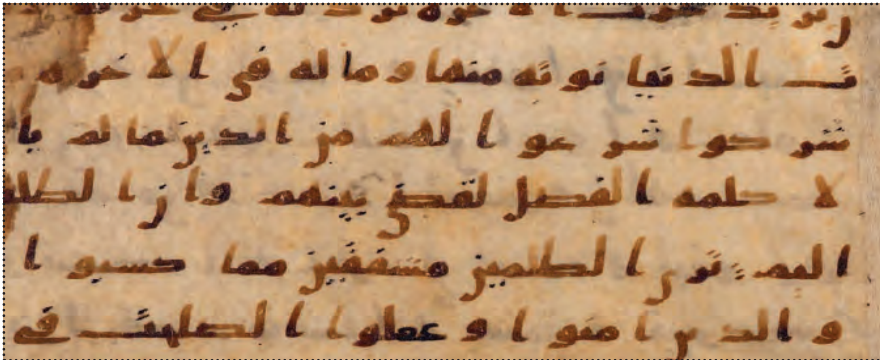 يريد حرث الاخره نزد له في حرثه
ث الدنيا نوته منها وما له في الاخره م
شركوا شرعوا لهم من الدين ما لم يا
لا كلمه الفصل لقضي بينهم وان الظلمـ
اليم ترى الظلمين مشفقين مما كسبوا
والذين امنوا وعملوا الصلحت في